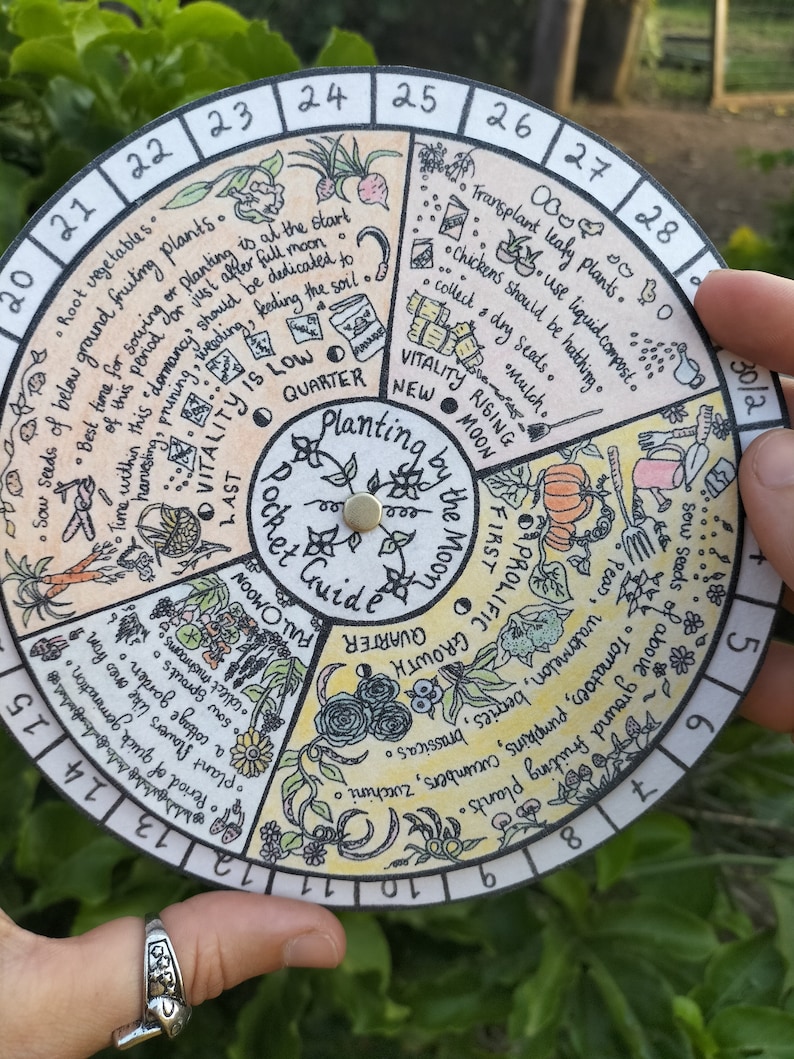 Planting by the Moon
Pocket Guide
NEW MOON
VITALITY RISING
Transplant leafy plants.
Use liquid compost.
Chickens should be hatching.
Collect & dry seeds
Mulch.
FIRST QUARTER
PROLIFIC GROWTH
Sow seeds of above ground fruiting plants.
Tomatoes, pumpkins, cucumbers, zucchini.
Peas, watermelon, berries, brassicas.
FULL MOON
Period of quick germination.
Plant flowers like ones from
a cottage garden.
Sow sprouts &
LAST QUARTER
VITALITY IS LOW
Root vegetables.
Sow seeds of below ground fruiting plants.
Best time for sowing or planting is at the start
of this period, or just after full moon
Time within this "dormancy" should be dedicated to
harvesting, pruning, weeding, feeding the soil
MANURE
20
21
22
23
24
25
26
27
28
30/2
5
6
7
8
9
10
11
12
13
14
15